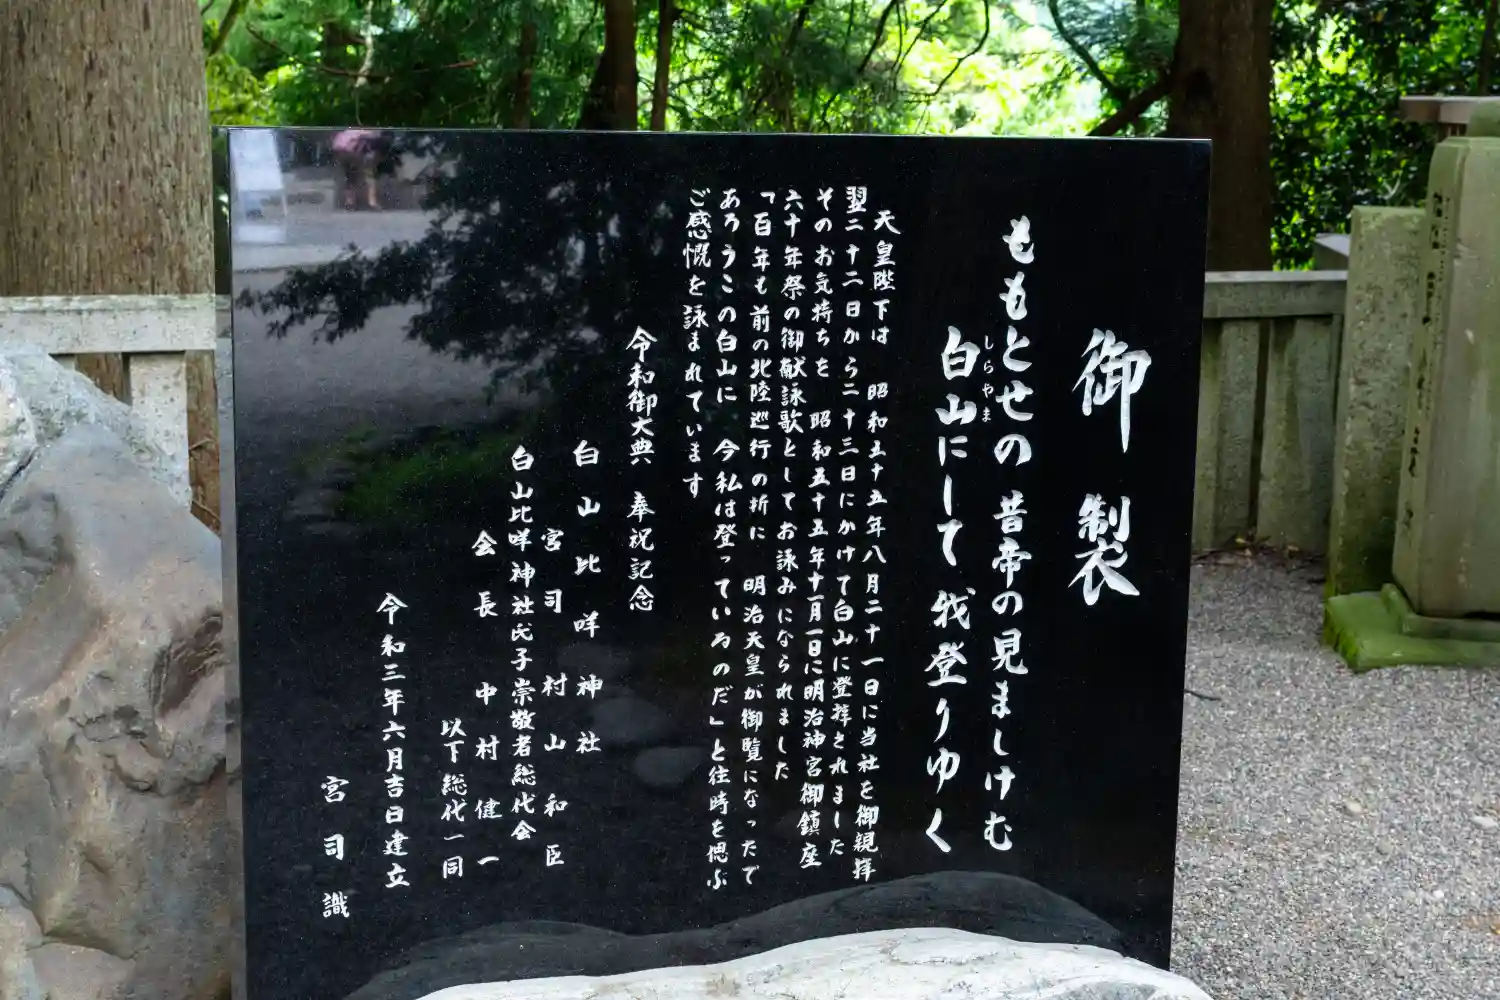 御製
ももとせの 昔帝の見ましけむ
しらやま
白山にして 我登りゆく
天皇陛下は 昭和五十五年八月二十一日に当社を御親拝
翌二十二日から二十三日にかけて白山に登拝されました
そのお気持ちを 昭和五十五年十一月一日に明治神宮御鎮座
六十年祭の御献詠歌としてお詠みになられました
「百年も前の北陸巡行の折に 明治天皇が御覧になったで
あろうこの白山に 今私は登っているのだ」と往時を偲ぶ
ご感慨を詠まれています
令和御大典 奉祝記念
白山比咩神社
宮司 村山和臣
白山比咩神社氏子崇敬者総代会
会長 中村健一
以下総代一同
令和三年六月吉日建立
宮司識